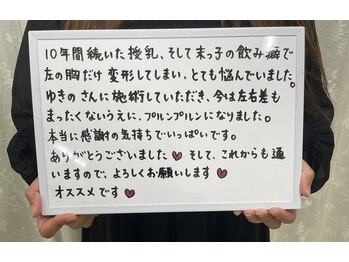 10年間続いた授乳、そして末っ子の飲み癖で
左の胸だけ変形してしまい、とても悩んでいました。
ゆきの さんに施術していただき、今は左右差も
まったくないうえに、プルンプルンになりました。
本当に感謝の気持ちでいっぱいです。
ありがとうございました♥ そして、これからも通
いますので、よろしくお願いします♥
オススメです♥